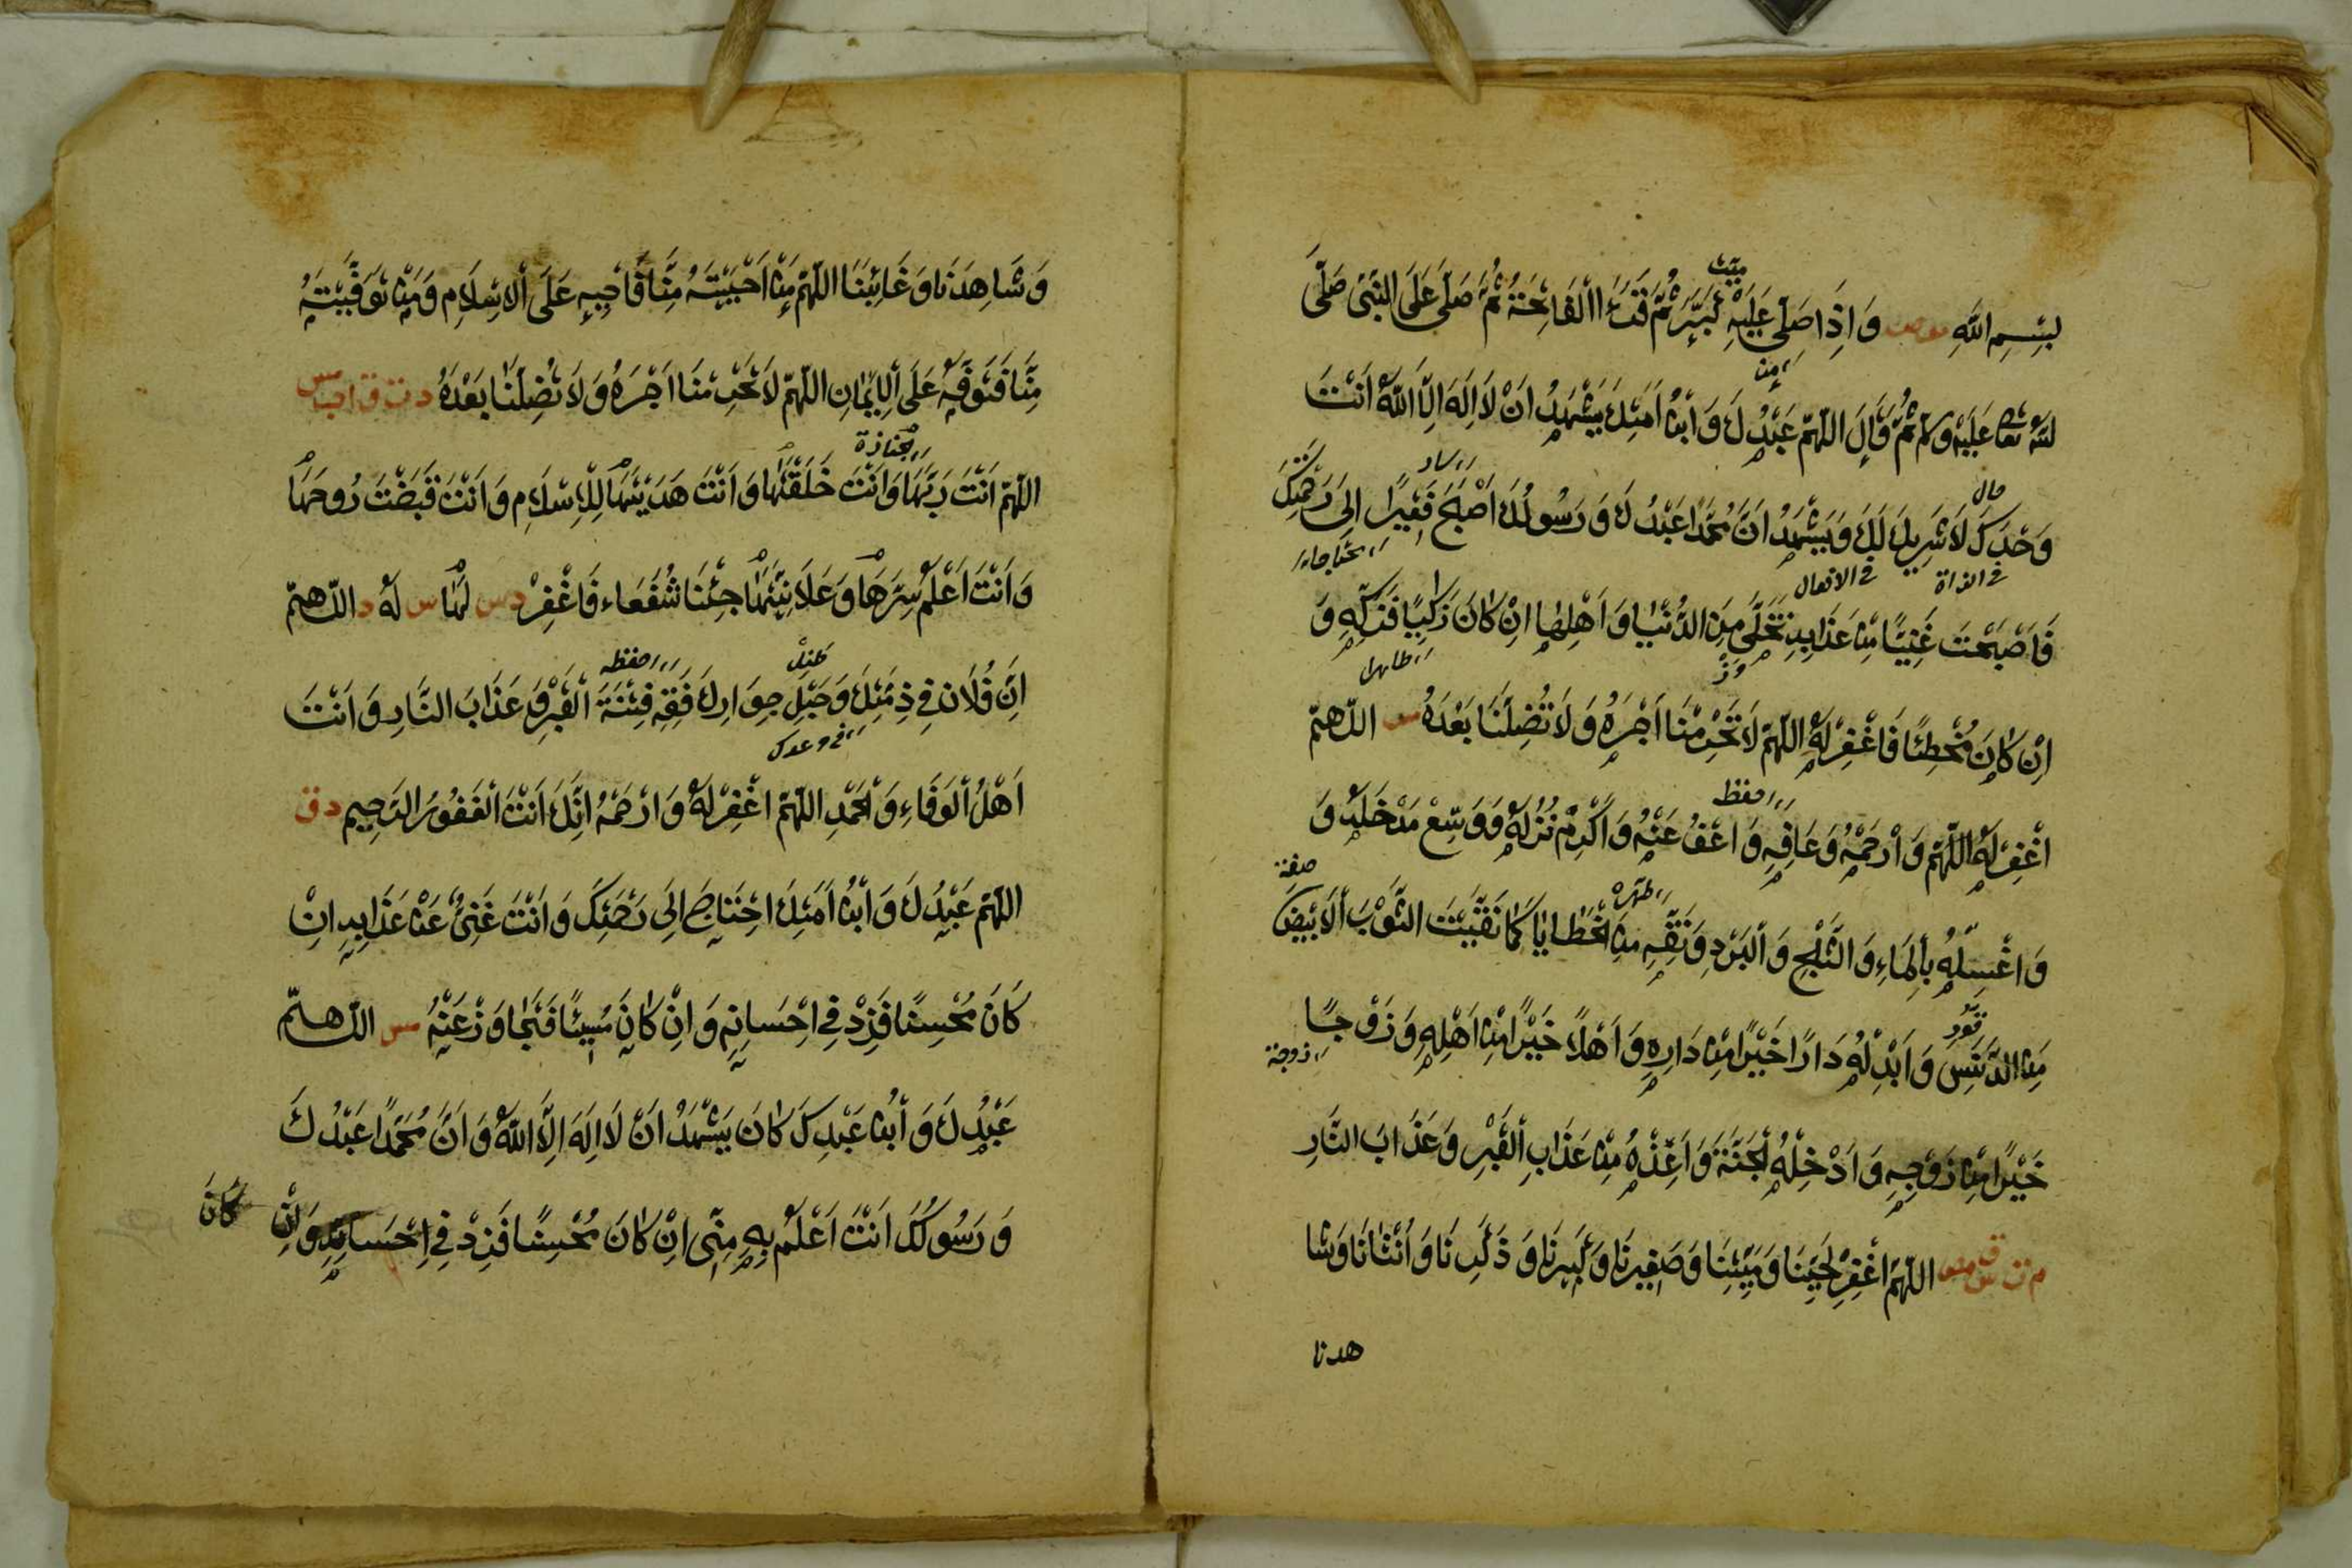 بِسْمِ اللّٰهِ مو مص وَاِذَا صَلّٰى عَلَيْهِ كَبَّرَ ثُمَّ قَرَأَ الْفَاتِحَةَ ثُمَّ صَلّٰى عَلَى النَّبِىِّ صَلَّى
ميّت
اللّٰهُ تعا عَلَيْهِ وسلم ثُمَّ قَالَ اللّٰهُمَّ عَبْدُكَ وَابْنُ اَمَتِكَ يَشْهَدُ اَنْ لَا اِلٰهَ اِلَّا اللّٰهُ اَنْتَ
وَحْدَكَ لَا شَرِيكَ لَكَ وَيَشْهَدُ اَنَّ مُحَمَّدًا عَبْدُكَ وَرَسُولُكَ اَصْبَحَ فَقِيرًا اِلٰى رَحْمَتِكَ
حال
فى الذاة
فى الافعال
فَاَصْبَحْتَ غَنِيًّا مِنْ عَذَابِهِ تَخَلَّى مِنَ الدُّنْيَا وَاَهْلِهَا اِنْ كَانَ زَاكِيًا فَزَكِّهِ وَ
طاهرا
اِنْ كَانَ مُخْطِئًا فَاغْفِرْ لَهُ اللّٰهُمَّ لَا تَحْرِمْنَا اَجْرَهُ وَلَا تُضِلَّنَا بَعْدَهُ مس اللّٰهُمَّ
اغْفِرْ لَهُ اللّٰهُمَّ وَارْحَمْهُ وَعَافِهِ وَاعْفُ عَنْهُ وَاَكْرِمْ نُزُلَهُ وَوَسِّعْ مَدْخَلَهُ وَ
احفظ
وَاغْسِلْهُ بِالْمَاءِ وَالثَّلْجِ وَالْبَرَدِ وَنَقِّهِ مِنَ الْخَطَايَا كَمَا نَقَّيْتَ الثَّوْبَ الْاَبْيَضَ
طهره
صفة
مِنَ الدَّنَسِ وَاَبْدِلْهُ دَارًا خَيْرًا مِنْ دَارِهِ وَاَهْلًا خَيْرًا مِنْ اَهْلِهِ وَزَوْجًا
زوجة
خَيْرًا مِنْ زَوْجِهِ وَاَدْخِلْهُ الْجَنَّةَ وَاَعِذْهُ مِنْ عَذَابِ الْقَبْرِ وَعَذَابَ النَّارِ
م ت س ق مص اللّٰهُمَّ اغْفِرْ لِحَيِّنَا وَمَيِّتِنَا وَصَغِيرِنَا وَكَبِيرِنَا وَذَكَرِنَا وَاُنْثَانَا وَشَا
هدنا
وَشَاهِدَنَا وَغَائِبَنَا اللّٰهُمَّ مَنْ اَحْيَيْتَهُ مِنَّا فَاَحْيِهِ عَلَى الْاِسْلَامِ وَمَنْ تَوَفَّيْتَهُ
مِنَّا فَتَوَفَّهُ عَلَى الْاِيمَانِ اللّٰهُمَّ لَا تَحْرِمْنَا اَجْرَهُ وَلَا تُضِلَّنَا بَعْدَهُ د ت ق ا حب مس
اللّٰهُمَّ اَنْتَ رَبُّهَا وَاَنْتَ خَلَقْتَهَا وَاَنْتَ هَدَيْتَهَا لِلْاِسْلَامِ وَاَنْتَ قَبَضْتَ رُوحَهَا
جنازة
وَاَنْتَ اَعْلَمُ سِرَّهَا وَعَلَانِيَتَهَا جِئْنَا شُفَعَاءَ فَاغْفِرْ د س لَهَا س لَهُ د اللّٰهُمَّ
اِنَّ فُلَان فِي ذِمَّتِكَ وَحَبْلِ جِوَارِكَ فَقِهِ فِتْنَةَ الْقَبْرِ وَعَذَابَ النَّارِ وَاَنْتَ
احفظه
فى وعدك
اَهْلُ الْوَفَاءِ وَالْحَمْدِ اللّٰهُمَّ اغْفِرْ لَهُ وَارْحَمْهُ اِنَّكَ اَنْتَ الْغَفُورُ الرَّحِيم د ق
اللّٰهُمَّ عَبْدُكَ وَابْنُ اَمَتِكَ احْتَاجَ اِلٰى رَحْمَتِكَ وَاَنْتَ غَنِىٌّ عَنْ عَذَابِهِ اِنْ
كَانَ مُحْسِنًا فَزِدْ فِي اِحْسَانِهِ وَاِنْ كَانَ مُسِيئًا فَتَجَاوَزْ عَنْهُ مس اللّٰهُمَّ
عَبْدُكَ وَابْنُ عَبْدِكَ كَانَ يَشْهَدُ اَنْ لَا اِلٰهَ اِلَّا اللّٰهُ وَاَنَّ مُحَمَّدًا عَبْدُكَ
وَرَسُولُكَ اَنْتَ اَعْلَمُ بِهِ مِنِّى اِنْ كَانَ مُحْسِنًا فَزِدْ فِي اِحْسَانِهِ وَاِنْ
كَانَ